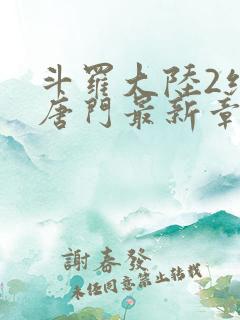 斗羅大陸2
唐門最新章
謝春發
未經同意禁止转載